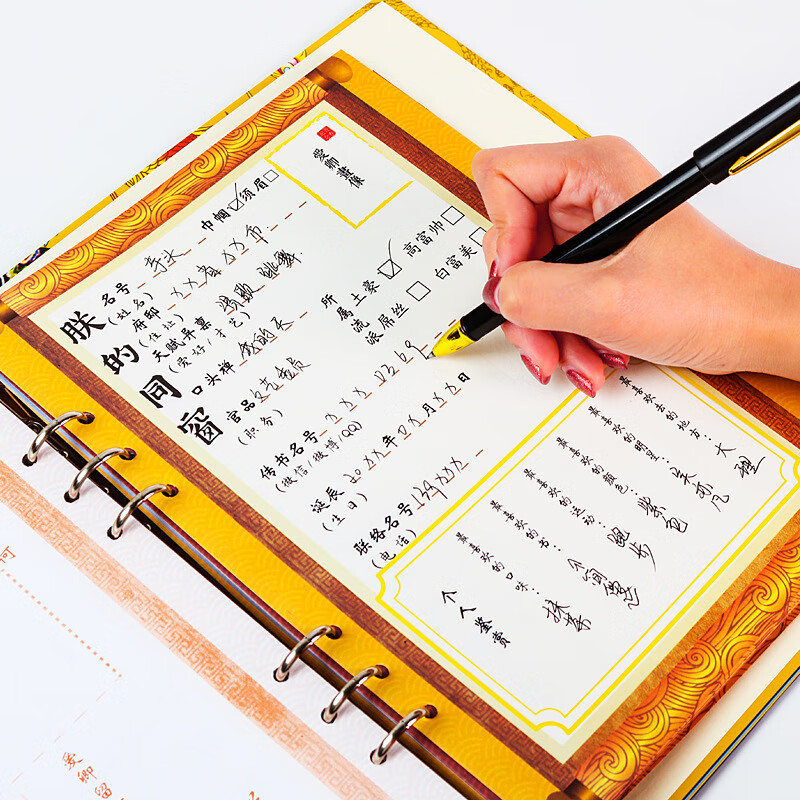 朕的同窗
爱卿画像
名号
(姓名)
巾帼 ☑ 须眉 □
府邸 XX省XX市
(住址)
天赋异禀 唱歌 跳舞
(爱好/才艺)
口头禅 我的天
官品 文艺委员
(职务)
所属流派
土豪 ☑ 高富帅 □
屌丝 □ 白富美 □
传书名号 XXX0369
(微信/微博/QQ)
诞辰 20XX年0X月XX日
(生日)
联络名号 139XXX
(电话)
个人鉴赏
最喜欢的口味: 抹茶
最喜欢的书:
最喜欢的运动: 跑步
最喜欢的颜色: 紫色
最喜欢的明星: 吴亦凡
最喜欢去的地方: 大理
爱卿留